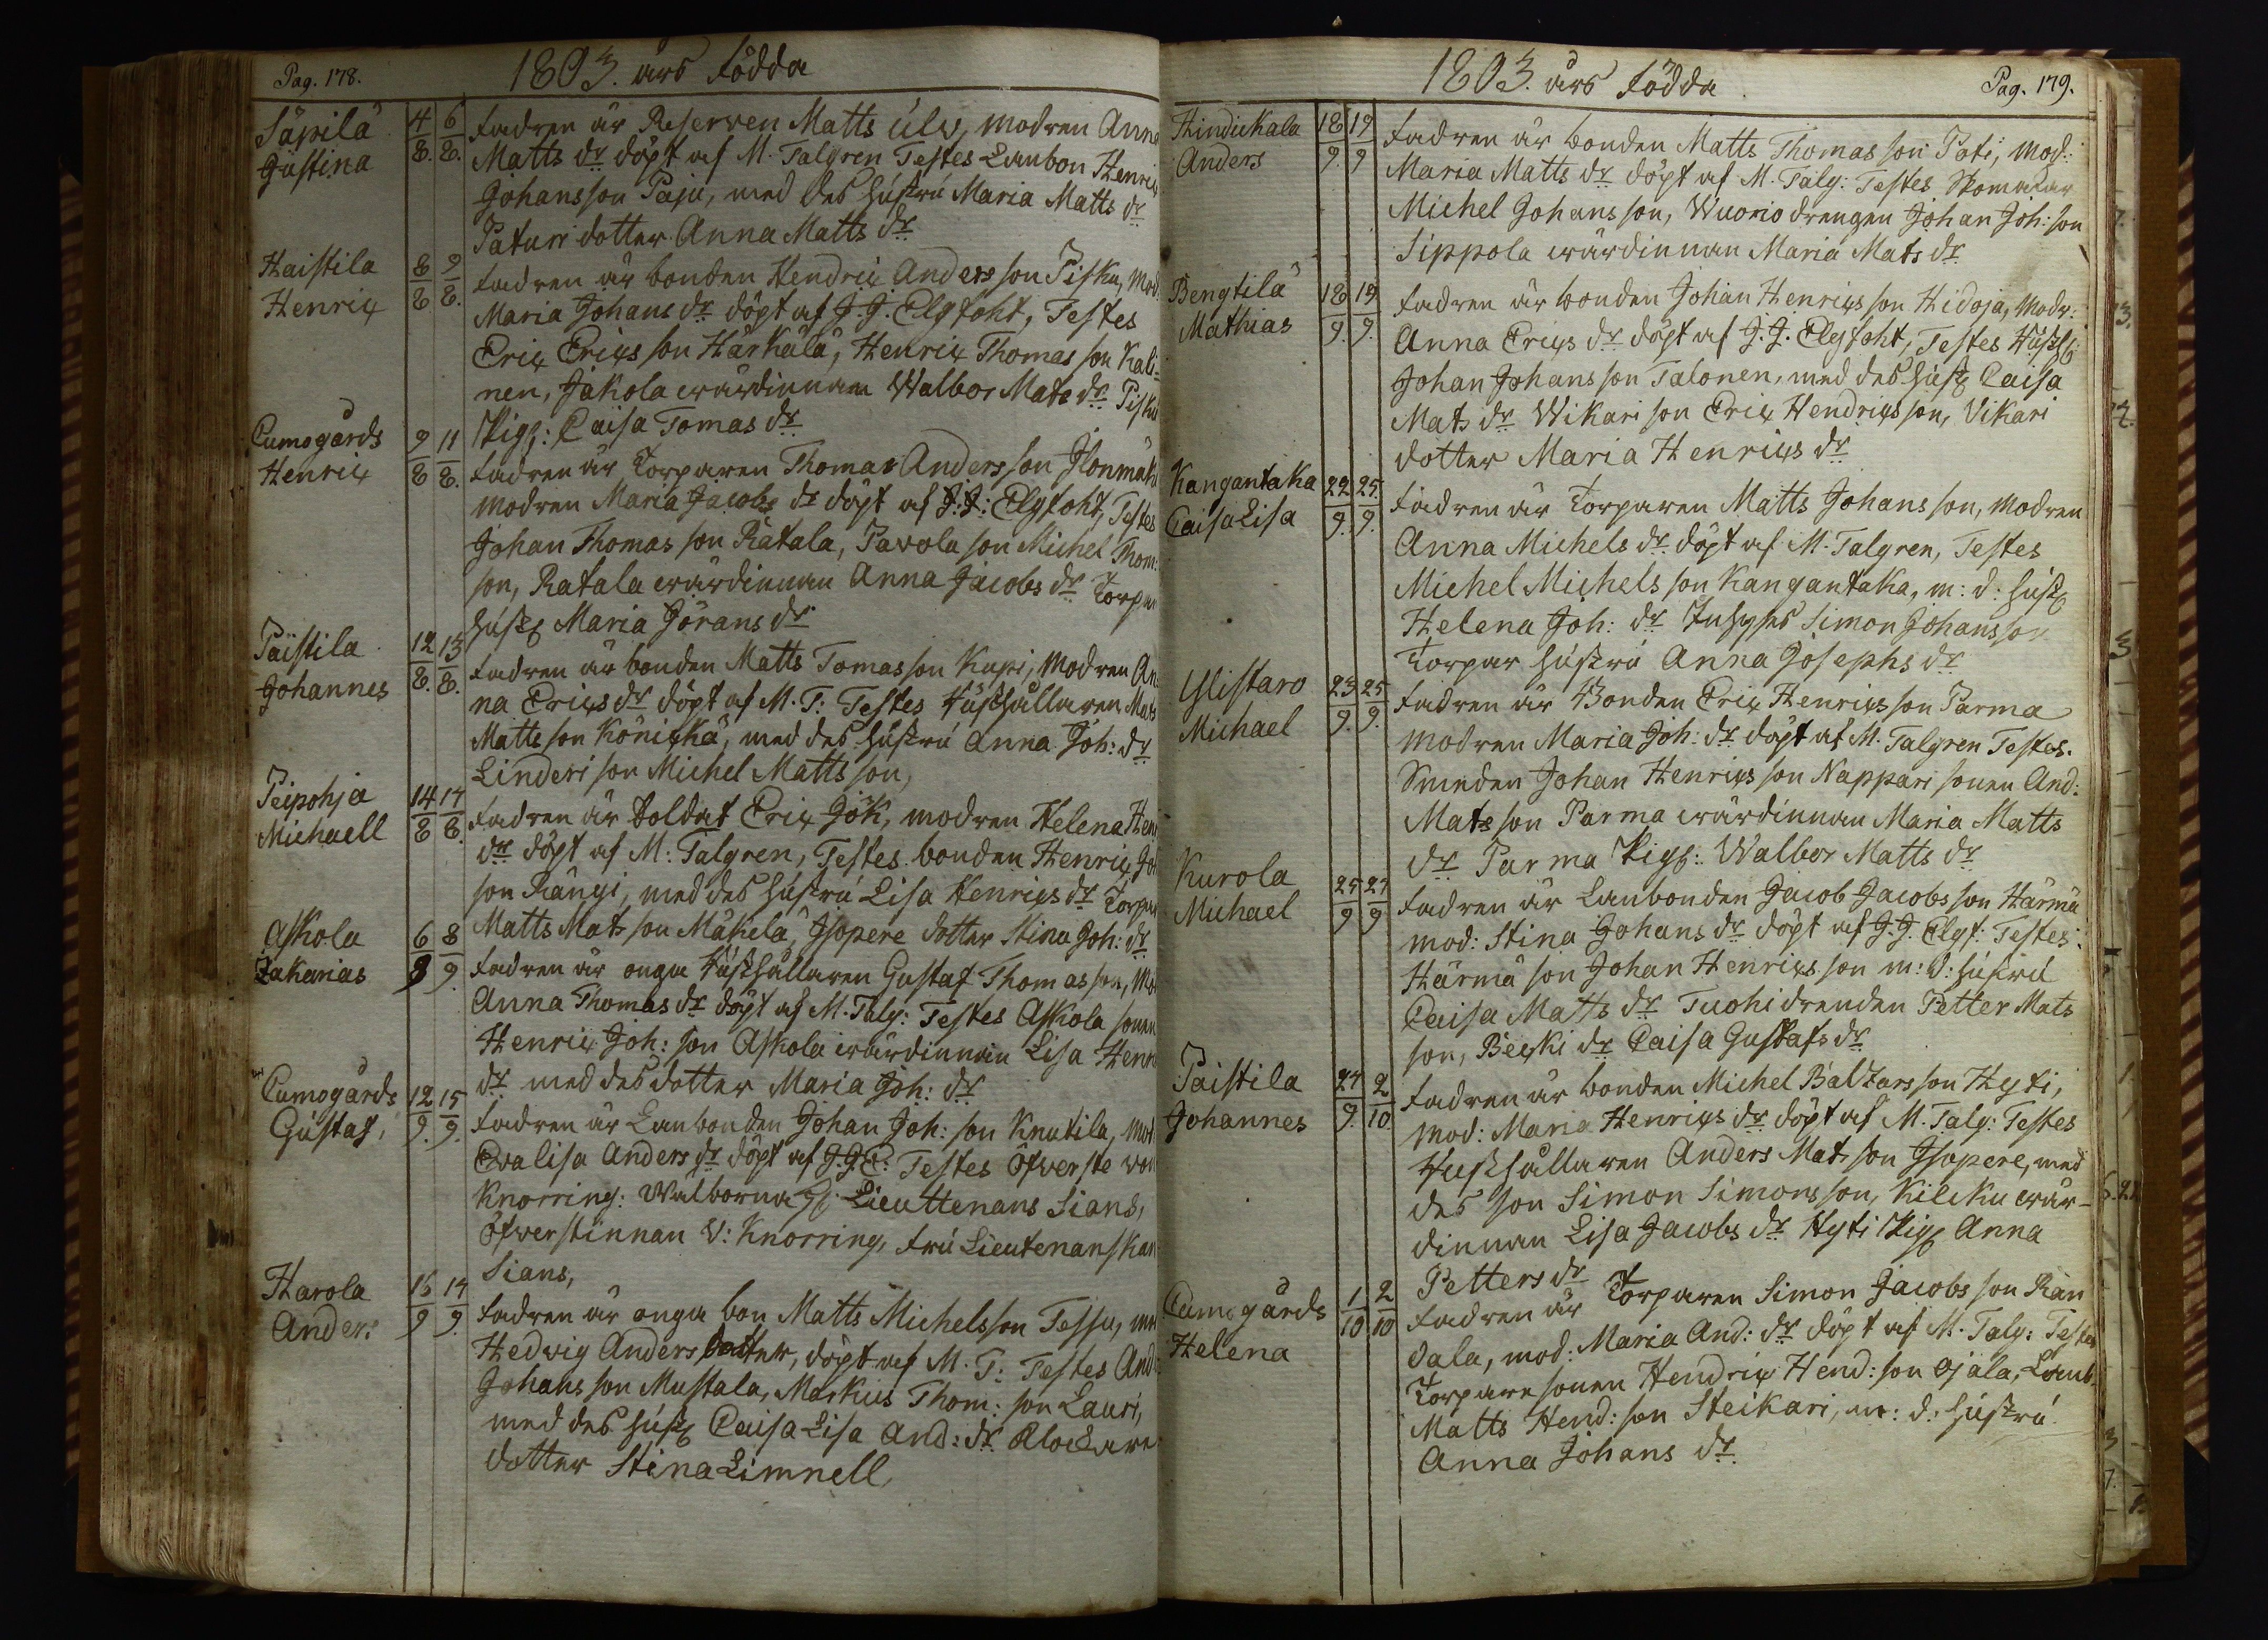 Pag. 178.
1803. års födda
Säpilä
Gustina
4/8. 6/8.
Fadren är Reserven Matts Ulv, modren Anna
Matts dr döpt af M. Talgren Testes Lanbon Henrix
Johansson Paju, med des hustru Maria Matts dr
Paturi dotter Anna Matts dr
Haistila
Henrix
8/8 9/8.
Fadren är bonden Hendrix Andersson Pisku, Mod.
Maria Johans dr döpt af J. J. Elgfoht, Testes
Erix Erixsson Härkälä, Henrix Thomas son Kali-
nen, Jakola wärdinnan Walbor Mats dr Pisku
Pig: Caisa Tomas dr
Cumogårds
Henrix
9/8 11/8.
Fadren är Torparen Thomas Andersson
modren Maria Jacobs dr döpt af J: J: Elgfoht, Testes
Johan Thomas son Ratala, Pavola son Michel Thom:
son, Ratala wärdinnan Anna Jacobs dr Torpar
hust Maria Görans dr
Päistila
Johannes
12/8. 13/8.
Fadren är bonden Matts Tomasson Kupi, Modren An
na Erixs dr döpt af M. T: Testes Hushållaren Mats
Matts son Könickä, med des hustru Anna Joh: dr
Linderi son Michel Matts son,
Peipohja
Michaell
14/8 17/8.
Fadren är Soldat Erix Jök, modren Helena Hen
dr döpt af M: Talgren, Testes bonden Henrix Joh
son Rängi, med des hustru Lisa Henrixs dr Torpar
Matts Mats son Mäkelä, Isopere dotter Stina Joh: dr
Askola
Zakarias
6/9 8/9.
Fadren är unga Hushållaren Gustaf Thomasson, Mod
Anna Thomas dr döpt af M. Talg: Testes Askola sonen
Henrix Joh: son Askola wärdinnan Lisa Henr
dr med des dotter Maria Joh: dr
Cumogårds
Gustaf,
12/9. 15/9.
Fadren är Lanbonden Johan Joh: son Knutila, Mod
Evalisa Anders dr döpt af J. J. E: Testes Öfverste von
Knorring: Walborna H. Lieuttenans Sians,
Öfverstinnan V: Knorring, Fru Lieutenanskan
Sians,
Harola
Anders
16/9 17/9.
Fadren är unga bon Matts Michelsson Tessu, mod
Hedvig Anders dotter, döpt af M. T: Testes And
Johans son Mustala, Markus Thom: son Lauri,
med des hust Caisa Lisa And: dr Klockare
dotter Stina Limnell
1803. års födda
Pag. 179.
Hindickala
Anders
18/9. 19/9
Fadren är bonden Matts Thomas son Pati, Mod:
Maria Matts dr döpt af M. Talg: Testes Skomakar
Michel Johans son, Wuorio drengen Johan Joh: son
Sippola wärdinnan Maria Mats dr
Bengtilä
Mathias
18/9. 19/9.
Fadren är bonden Johan Henrixs son Hidoja, Modr:
Anna Erixs dr döpt af J. J. Elgfoht, Testes
Johan Johans son Talonen, med des hust Caisa
Mats dr Wikari son Erix Hendrixs son, Vikari
dotter Maria Henrixs dr
Kangantaka
Caisa Lisa
22/9. 25/9.
Fadren är Torparen Matts Johans son, Modren
Anna Michels dr döpt af M. Talgren, Testes
Michel Michels son Kangantaka, m: d: hust
Helena Joh: dr Inhyses Simon Johansson
Torpar hustru Anna Josephs dr
Ylistaro
Michael
23/9. 25/9.
Fadren är Bonden Erix Henrixs son Parma
modren Maria Joh: dr döpt af M. Talgren Testes.
Smeden Johan Henrixs son Nappari sonen And:
Mats son Parma wärdinnan Maria Matts
dr Parma Pig: Walbor Matts dr
Kurola
Michael
25/9 27/9
Fadren är Lanbonden Jacob Jacobs son Härmä
mod: Stina Johans dr döpt af J. J. Elgf: Testes:
Härmä son Johan Henrixs son m: d: hustru
Caisa Matts dr Tuohi drenden Petter Mats
son, Becki dr Caisa Gustafs dr
Paistila
Johannes
27/9. 2/10.
Fadren är bonden Michel Baltzars son Hyti,
Mod: Maria Henrixs dr döpt af M. Talg: Testes
Hushållaren Anders Mats son Isopere, med
des son Simon Simons son, Kiliku wär-
dinnan Lisa Jacobs dr Hyti Pig Anna
Petters dr
Cumogårds
Helena
1/10 2/10
Fadren är Torparen Simon Jacobs son Ran
dala, mod: Maria And: dr döpt af M. Talg: Testes
Torpare sonen Hendrix Hend: son Ojala, Lanb.
Matts Hend: son Steikari, m: d: hustru
Anna Johans dr.